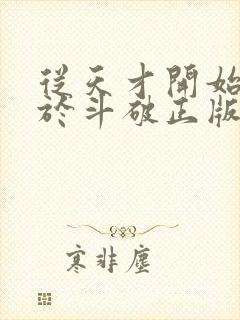 從天才開始
於斗破正版
寒非塵